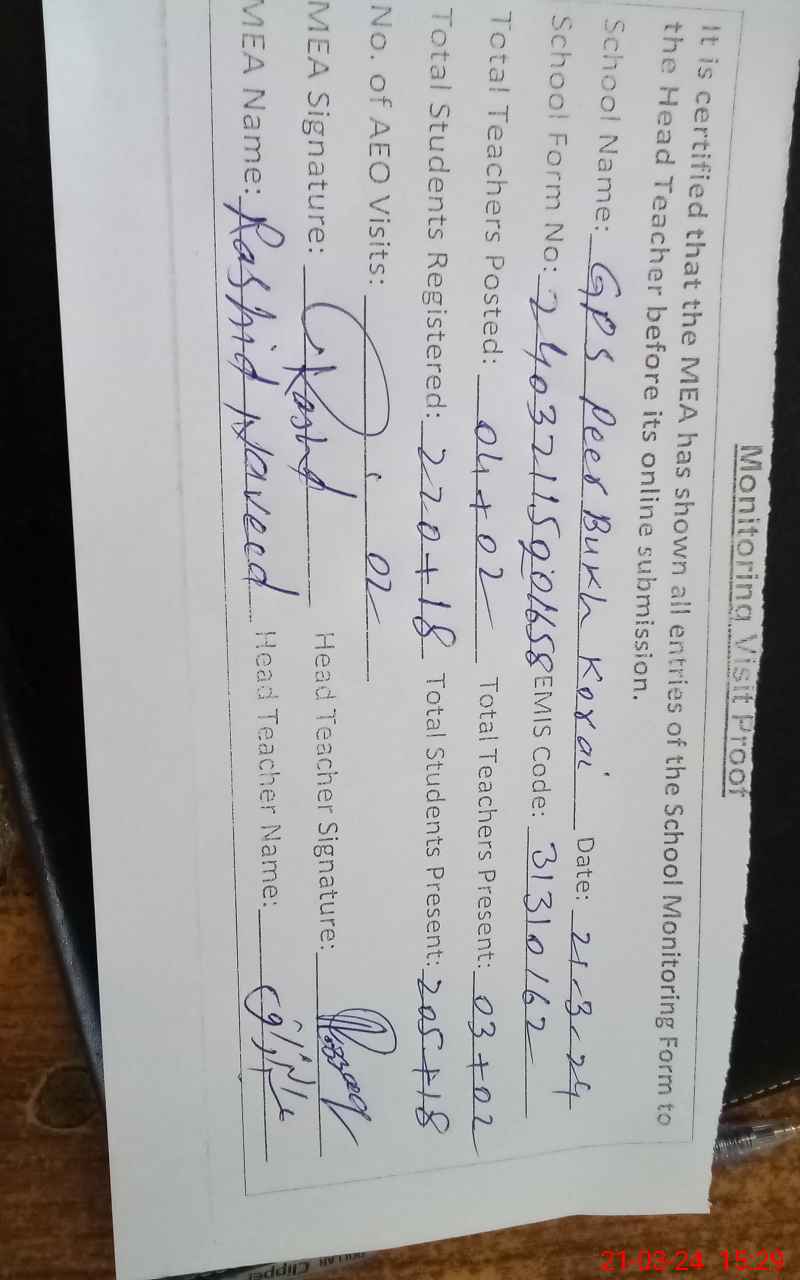 Monitoring Visit Proof
It is certified that the MEA has shown all entries of the School Monitoring Form to
the Head Teacher before its online submission.
School Name: GPS Peer Bukh Korai Date: 21-3-24
School Form No: EMIS Code: 31310162
Total Teachers Posted: 04+02 Total Teachers Present: 03+02
Total Students Registered: 220+18 Total Students Present: 205+18
No. of AEO Visits: 02
MEA Signature: Rashid Head Teacher Signature:
MEA Name: Rashid Naveed Head Teacher Name:
DOLLAR Clipper
21-03-24 15:29